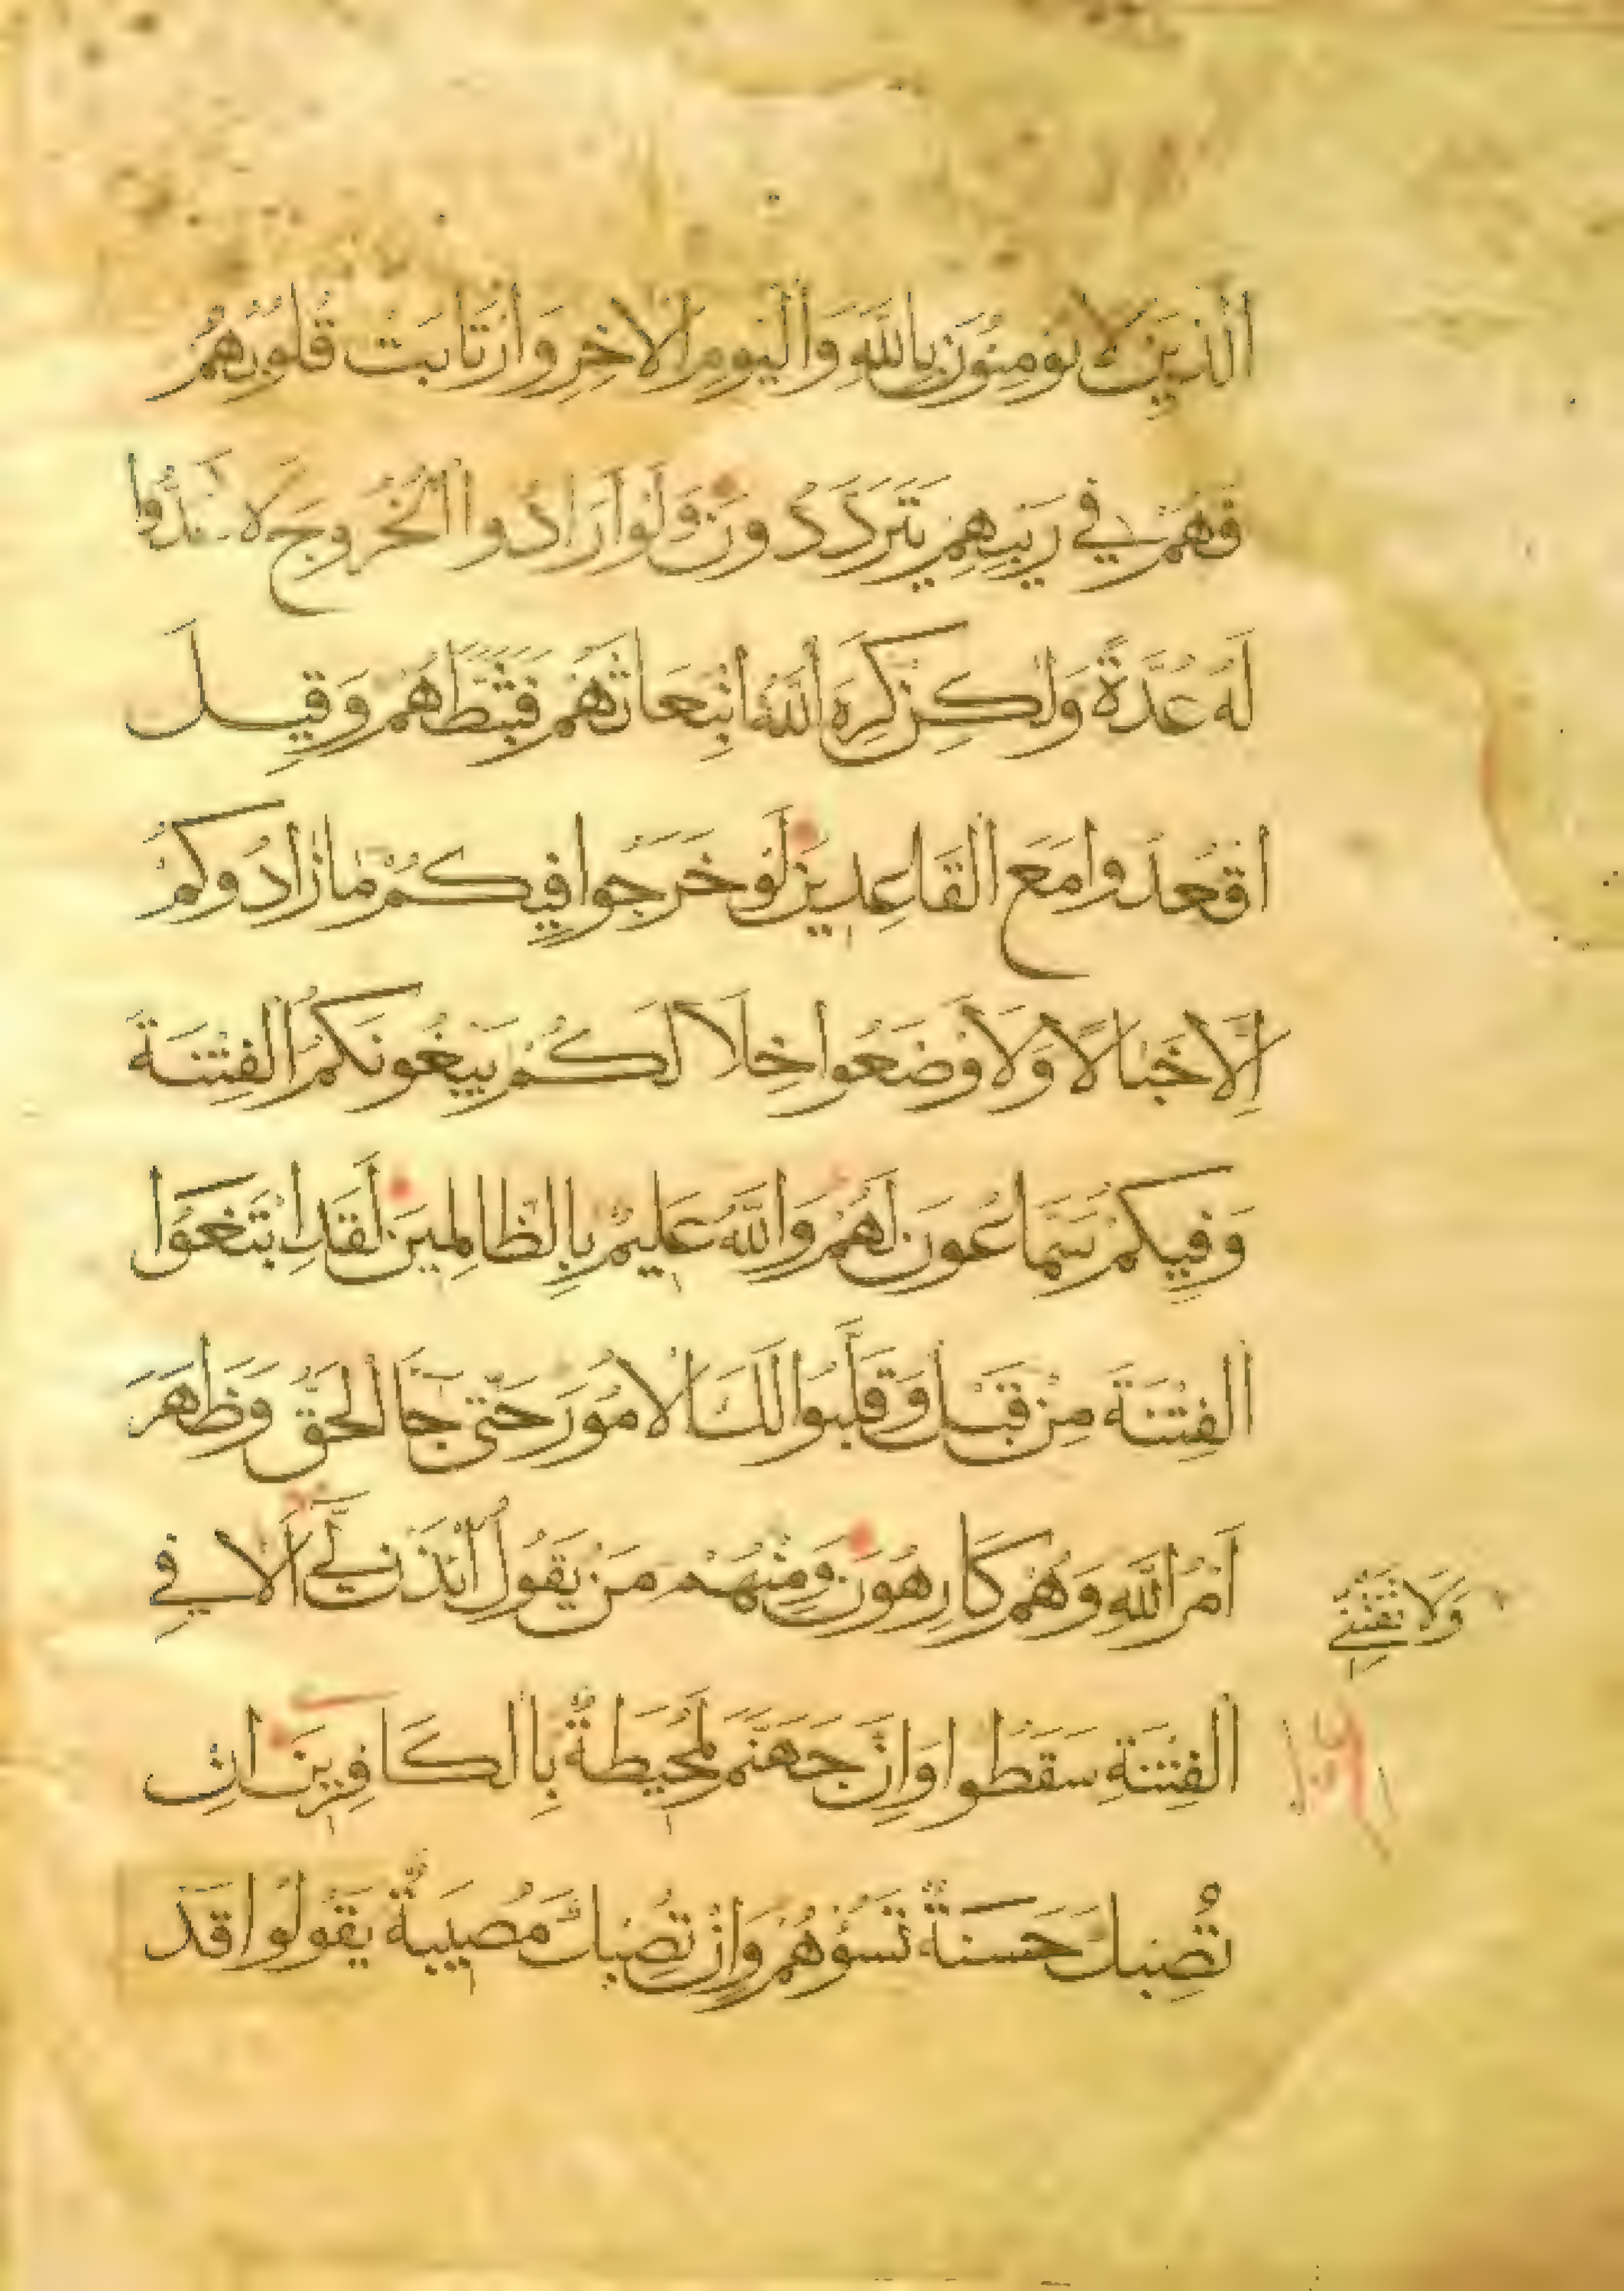 الَّذِينَ لَا يُومِنُونَ بِاللَّهِ وَالْيَوْمِ الْاخِرِ وَارْتَابَتْ قُلُوبُهُمْ
فَهُمْ فِي رَيْبِهِمْ يَتَرَدَّدُونَ وَلَوْ أَرَادُوا الْخُرُوجَ لَاعَدُّوا
لَهُ عُدَّةً وَلَكِنْ كَرِهَ اللَّهُ انْبِعَاثَهُمْ فَثَبَّطَهُمْ وَقِيلَ
اقْعُدُوا مَعَ الْقَاعِدِينَ لَوْ خَرَجُوا فِيكُمْ مَا زَادُوكُمْ
إِلَّا خَبَالًا وَلَاوْضَعُوا خِلَالَكُمْ يَبْغُونَكُمُ الْفِتْنَةَ
وَفِيكُمْ سَمَّاعُونَ لَهُمْ وَاللَّهُ عَلِيمٌ بِالظَّالِمِينَ لَقَدِ ابْتَغَوُا
الْفِتْنَةَ مِنْ قَبْلُ وَقَلَّبُوا لَكَ الْامُورَ حَتَّى جَا الْحَقُّ وَظَهَرَ
أَمْرُ اللَّهِ وَهُمْ كَارِهُونَ وَمِنْهُمْ مَنْ يَقُولُ ائْذَنْ لِي أَلَا فِي
وَلَا تَفْتِنِّي
الْفِتْنَةِ سَقَطُوا وَإِنَّ جَهَنَّمَ لَمُحِيطَةٌ بِالْكَافِرِينَ إِنْ
تُصِبْكَ حَسَنَةٌ تَسُؤْهُمْ وَإِنْ تُصِبْكَ مُصِيبَةٌ يَقُولُوا قَدْ